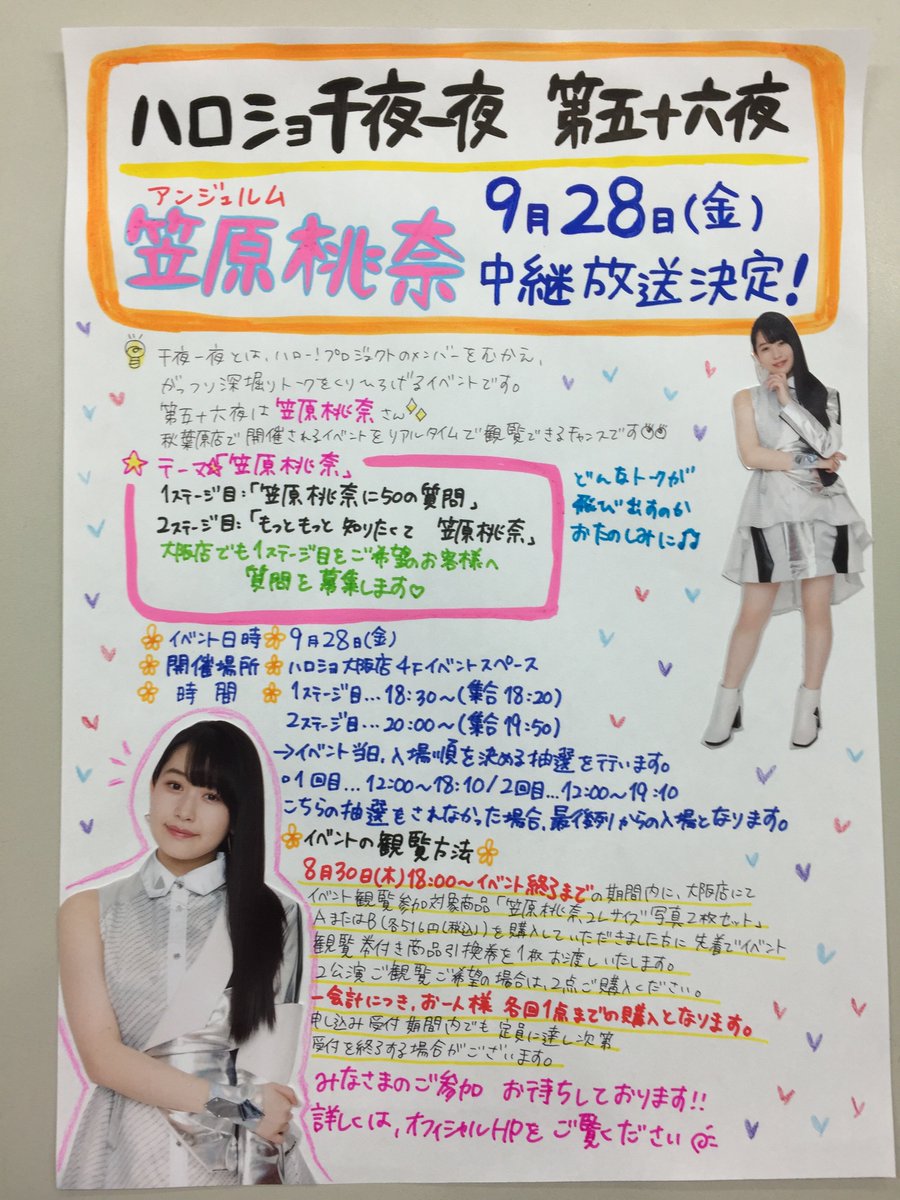 ハロショ千夜一夜 第五十六夜
アンジュルム
笠原桃奈
9月28日(金)
中継放送決定!
千夜一夜とは、ハロー!プロジェクトのメンバーをむかえ、
がっつり深堀りトークをくりひろげるイベントです。
第五十六夜は笠原桃奈さん
秋葉原店で開催されるイベントをリアルタイムで観覧できるチャンスです
テーマ「笠原桃奈」
1ステージ目:「笠原桃奈に50の質問」
2ステージ目:「もっともっと知りたくて 笠原桃奈」
大阪店でも1ステージ目をご希望のお客様へ
質問を募集します♡
どんなトークが
飛び出すのか
おたのしみに♪♪
イベント日時 9月28日(金)
開催場所 ハロショ大阪店4Fイベントスペース
時間 1ステージ目...18:30~(集合18:20)
2ステージ目...20:00~(集合19:50)
→イベント当日、入場順を決める抽選を行います。
○1回目...12:00~18:10/2回目...12:00~19:10
こちらの抽選をされなかった場合、最後列からの入場となります。
イベントの観覧方法
8月30日(木)18:00~イベント終了までの期間内に、大阪店にて
イベント観覧参加対象商品「笠原桃奈2Lサイズ写真2枚セット」
AまたはB(各516円(税込))を購入していただきました方に先着でイベント
観覧券付き商品引換券を1枚お渡しいたします。
2公演ご観覧ご希望の場合は、2点ご購入ください。
一会計につき、お一人様 各回1点までの購入となります。
申し込み受付期間内でも定員に達し次第
受付を終了する場合がございます。
みなさまのご参加 お待ちしております!!
詳しくは、オフィシャルHPをご覧ください